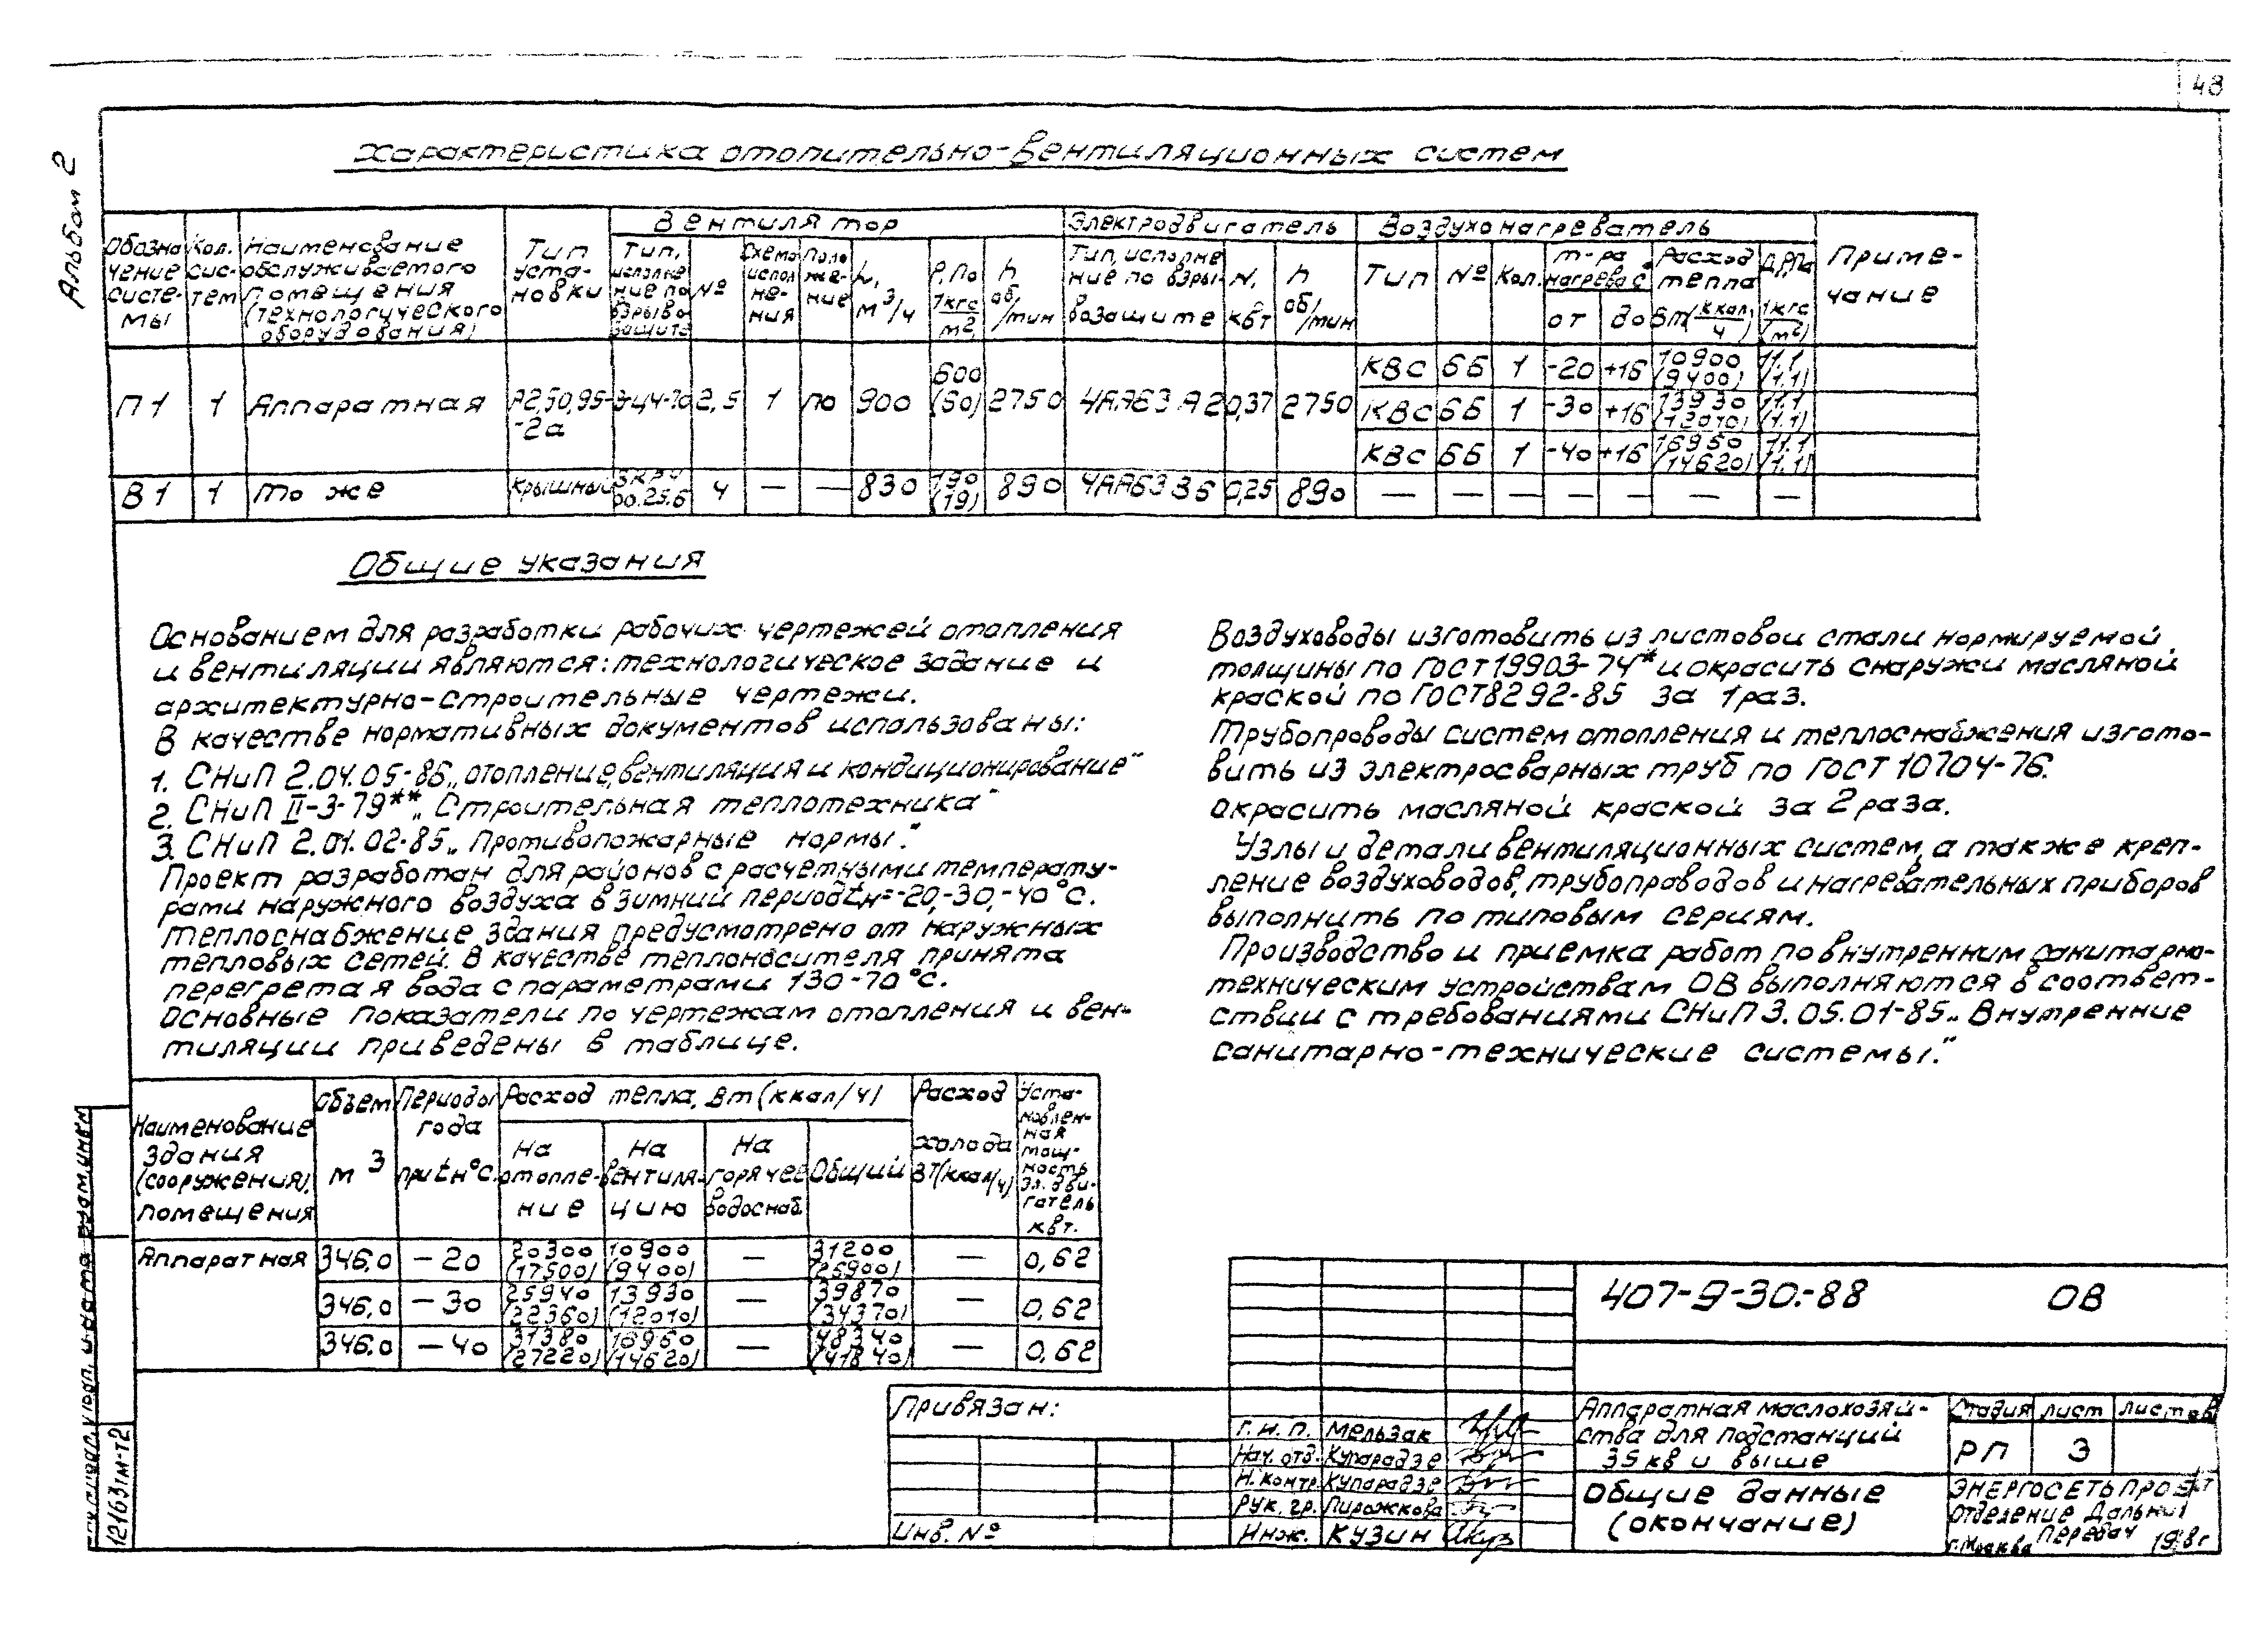 48
Альбом 2
Характеристика отопительно-вентиляционных систем
Обозна чение систе- мы | Кол. сис- тем | Наименование обслуживаемого помещения (технологического оборудования) | Тип уста- новки | Вентилятор | Электродвигатель | Воздухонагреватель | Приме- чание
Тип, исполне ние по взрыво защите | № | Схема испол не- ния | Поло же- ние | L, м³/ч | Р, Па (кгс/м²) | n об/мин | Тип, исполне ние по взры- возащите | N, кВт | n об/мин | Тип | № | Кол. | т-ра нагрева °С от до | Расход тепла Вт(ккал/ч) | ΔР,Па (кгс/м²)
П1 | 1 | Аппаратная | А2,5095- -2а | В-Ц4-70 | 2,5 | 1 | ПО | 900 | 600 (60) | 2750 | 4АА63А2 | 0,37 | 2750 | КВС | 6Б | 1 | -20 | +16 | 10900 (9400) | 11.1 (1.1)
КВС | 6Б | 1 | -30 | +16 | 13930 (12010) | 11.1 (1.1)
КВС | 6Б | 1 | -40 | +16 | 16950 (14620) | 11.1 (1.1)
В1 | 1 | То же | Крышный | 4 | — | — | 830 | 190 (19) | 890 | 4АА63В6 | 0,25 | 890 | — | — | — | — | — | — | —
Общие указания
Основанием для разработки рабочих чертежей отопления
и вентиляции являются: технологическое задание и
архитектурно-строительные чертежи.
В качестве нормативных документов использованы:
1. СНиП 2.04.05-86 „отопление, вентиляция и кондиционирование"
2. СНиП II-3-79** „Строительная теплотехника"
3. СНиП 2.01.02-85 „Противопожарные нормы".
Проект разработан для районов с расчетными температу-
рами наружного воздуха в зимний период tн=-20,-30,-40°С.
Теплоснабжение здания предусмотрено от наружных
тепловых сетей. В качестве теплоносителя принята
перегретая вода с параметрами 130-70°С.
Основные показатели по чертежам отопления и вен-
тиляции приведены в таблице.
Воздуховоды изготовить из листовой стали нормируемой
толщины по ГОСТ 19903-74* и окрасить снаружи масляной
краской по ГОСТ 8292-85 за 1 раз.
Трубопроводы систем отопления и теплоснабжения изгото-
вить из электросварных труб по ГОСТ 10704-76.
окрасить масляной краской за 2 раза.
Узлы и детали вентиляционных систем, а также креп-
ление воздуховодов, трубопроводов и нагревательных приборов
выполнить по типовым сериям.
Производство и приемка работ по внутренним санитарно-
техническим устройствам ОВ выполняются в соответ-
ствии с требованиями СНиП 3.05.01-85 „Внутренние
санитарно-технические системы."
Наименование здания (сооружения), помещения | Объем м³ | Периоды года при tн°С. | Расход тепла, Вт (ккал/ч) | Расход холода Вт(ккал/ч) | Уста- новлен- ная мощ- ность эл. дви- гатель квт.
На отопле- ние | На вентиля- цию | На горячее водоснаб. | Общий
Аппаратная | 346,0 | -20 | 20300 (17500) | 10900 (9400) | — | 31200 (26900) | — | 0,62
346,0 | -30 | 25940 (22360) | 13930 (12010) | — | 39870 (34370) | — | 0,62
346,0 | -40 | 31380 (27220) | 16960 (14620) | — | 48340 (41840) | — | 0,62
Подп. и дата
Взам. инв. №
12163тм-т2
Привязан:
Инв. №
407-9-30.-88 ОВ
Г. И. П. Мельзак
Нач. отд. Купарадзе
Н. контр. Купарадзе
Рук. гр. Пирожкова
Инж. Кузин
Аппаратная маслохозяй-
ства для подстанций
35 кв и выше
Стадия | лист | листов
РП | 3
Общие данные
(окончание)
ЭНЕРГОСЕТЬПРОЕКТ
Отделение Дальних
Передач
г. Москва 1988г